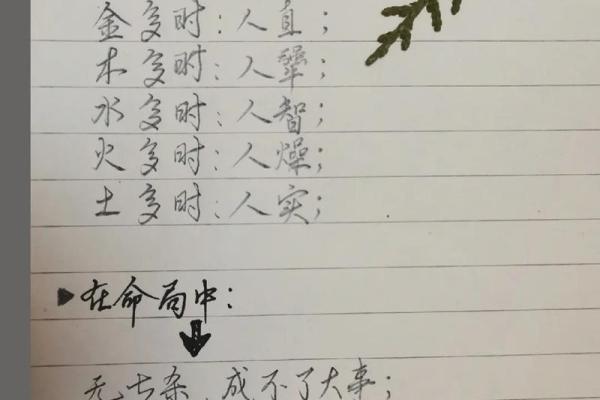 金多时：人直；
木多时：人犟；
水多时：人智；
火多时：人燥；
土多时：人实；
在命局中：
无七杀，成不了大事；